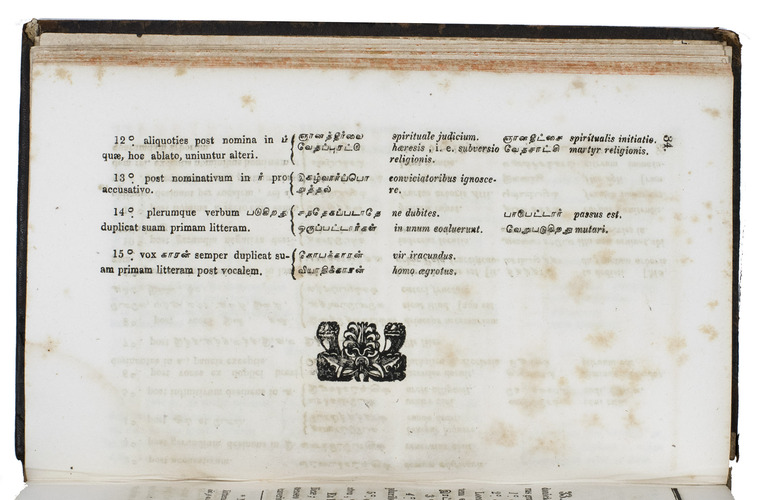 34
12º. aliquoties post nomina in ம் { ஞானத்தீர்வை spirituale judicium. ஞானதீட்சை spiritualis initiatio.
quæ, hoc ablato, uniuntur alteri. வேதப்புரட்டு hæresis, i. e. subversio வேதசாட்சி martyr religionis.
religionis.
13º. post nominativum in ர் pro { இகழ்வார்ப்பொ conviciatoribus ignosce-
accusativo. றுத்தல் re.
14º. plerumque verbum படுகிறது { சந்தேகப்படாதே ne dubites. பாடுபட்டார் passus est.
duplicat suam primam litteram. ஒருப்பட்டார்கள் in unum coaluerunt. வேறுபடுகிறது mutari.
15º. vox காரன் semper duplicat su- { கோபக்காரன் vir iracundus.
am primam litteram post vocalem. வியாதிக்காரன் homo ægrotus.